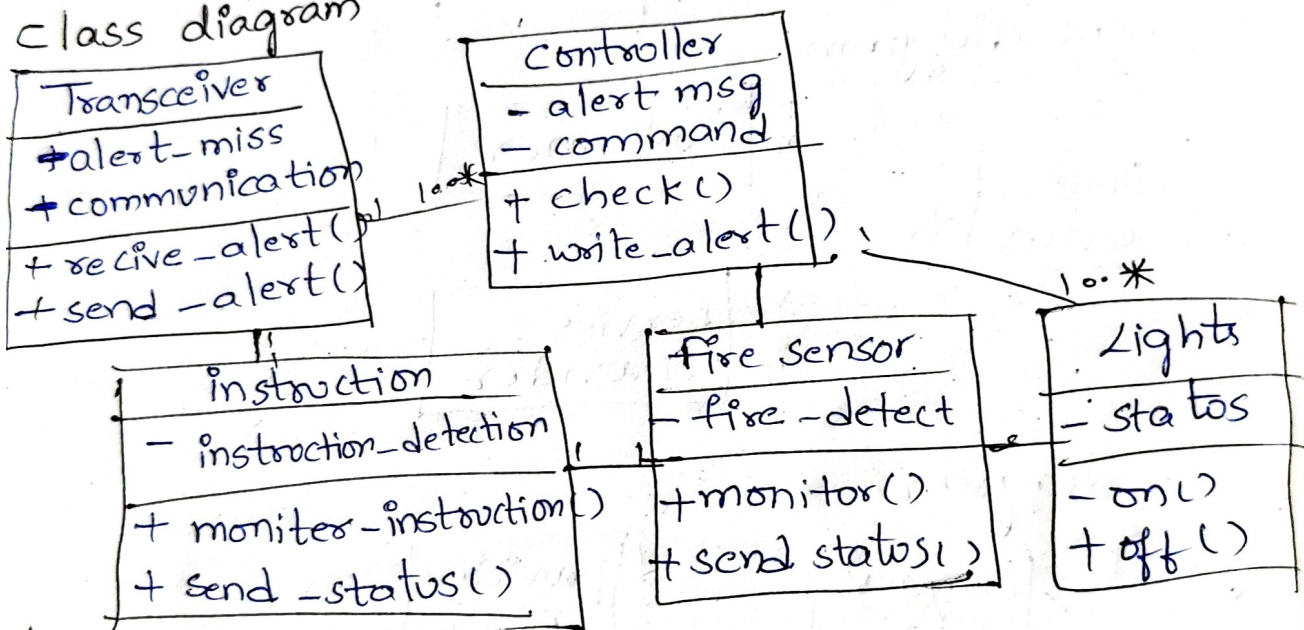 Class diagram
Transceiver
+alert-miss
+ communication
+ recive-alert()
+ send-alert()
1
1..*
Controller
- alert msg
- command
+ check()
+ write-alert()
1
1..*
1
instruction
- instroction-detection
+ moniter-instruction()
+ send-status()
1
1
fire sensor
- fire-detect
+monitor()
+ send status()
Lights
- status
- on()
+ off()